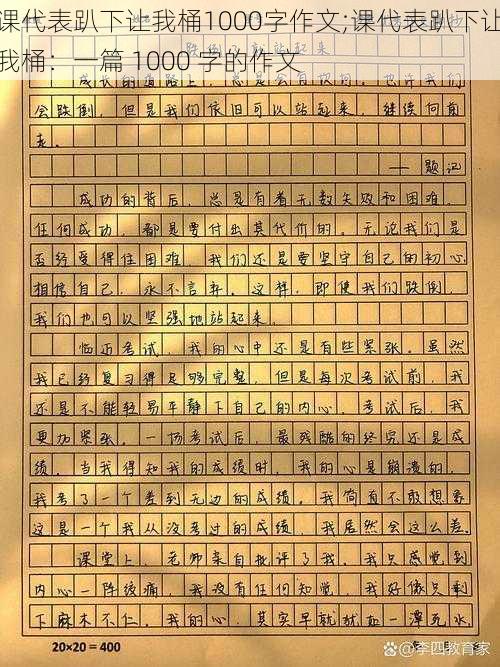 课代表趴下让我桶1000字作文;课代表趴下让
我桶：一篇 1000 字的作文
成长的道路上，总是会有坎坷，也许我们
会跌倒，但是我们依旧可以站起来，继续向前
走。
——题记
成功的背后，总是有着无数失败和困难。
任何成功，都是要付出其代价的。无论我们是
否经受得住困难，我们还是要坚守自己的初心，
相信自己，永不言弃。这样，即使我们跌倒，
我们也可以坚强地站起来。
临近考试，我的心中还是有些紧张。虽然
我已经复习得足够完整，但是每次考试前，我
还是不能轻易平静下自己的内心。考试后，我
更加紧张。一场考试后，最残酷的终究还是成
绩。当我得知我的成绩时，我的心是崩溃的。
我考了一个差到无边的成绩。我简直不敢想象
这是一个我从没考过的成绩，我居然会这么差。
课堂上，老师亲自批评了我。我只感觉到
内心一阵绞痛，我没有任何知觉，我好像只剩
下麻木不仁。我的心，其实早就犹如一潭死水
20×20=400
@李四教育家